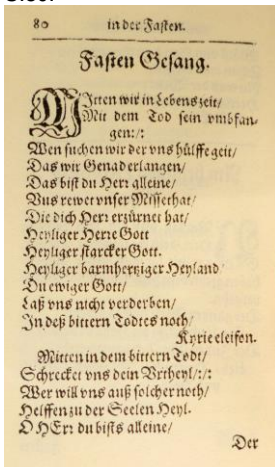 80 in der Fasten.
Fasten Gesang.
MJtten wir in Lebens zeit/
Mit dem Tod sein vmbfan-
gen:/:
Wen suchen wir der vns hülffe geit/
Das wir Genad erlangen/
Das bist du Herr alleine/
Vns rewet vnser Missethat/
Die dich Herr erzürnet hat/
Heyliger Herre Gott
Heyliger starcker Gott.
Heyliger barmhertziger Heyland/
Du ewiger Gott/
Laß vns nicht verderben/
Jn deß bittern Todtes noth/
Kyrie eleison.
Mitten in dem bittern Todt/
Schrecket vns dein Vrtheyl/:/:
Wer will vns auß solcher noth/
Helffen zu der Seelen Heyl.
O HErr du bists alleine/
Der